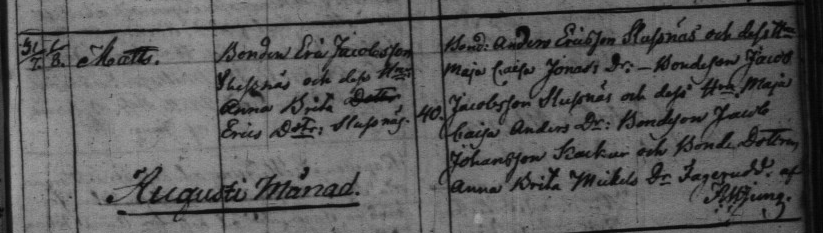 31/7. 1/8. Matts.
Bonden Eric Jacobsson
Slussnäs och dess Hu:
Anna Brita Dotter
Erics Dotr: Slussnäs.
40.
Bond: Anders Ericsson Slussnäs och dess Hu
Maja Caisa Jonas: Dr: – Bondeson Jacob
Jacobsson Slussnäs och dess Hru Maja
Caisa Anders Dr: Bondeson Jacob
Johansson Kackur och Bonde Dottren
Anna Brita Mickels Dr Fagerudd. af
Augusti Månad.